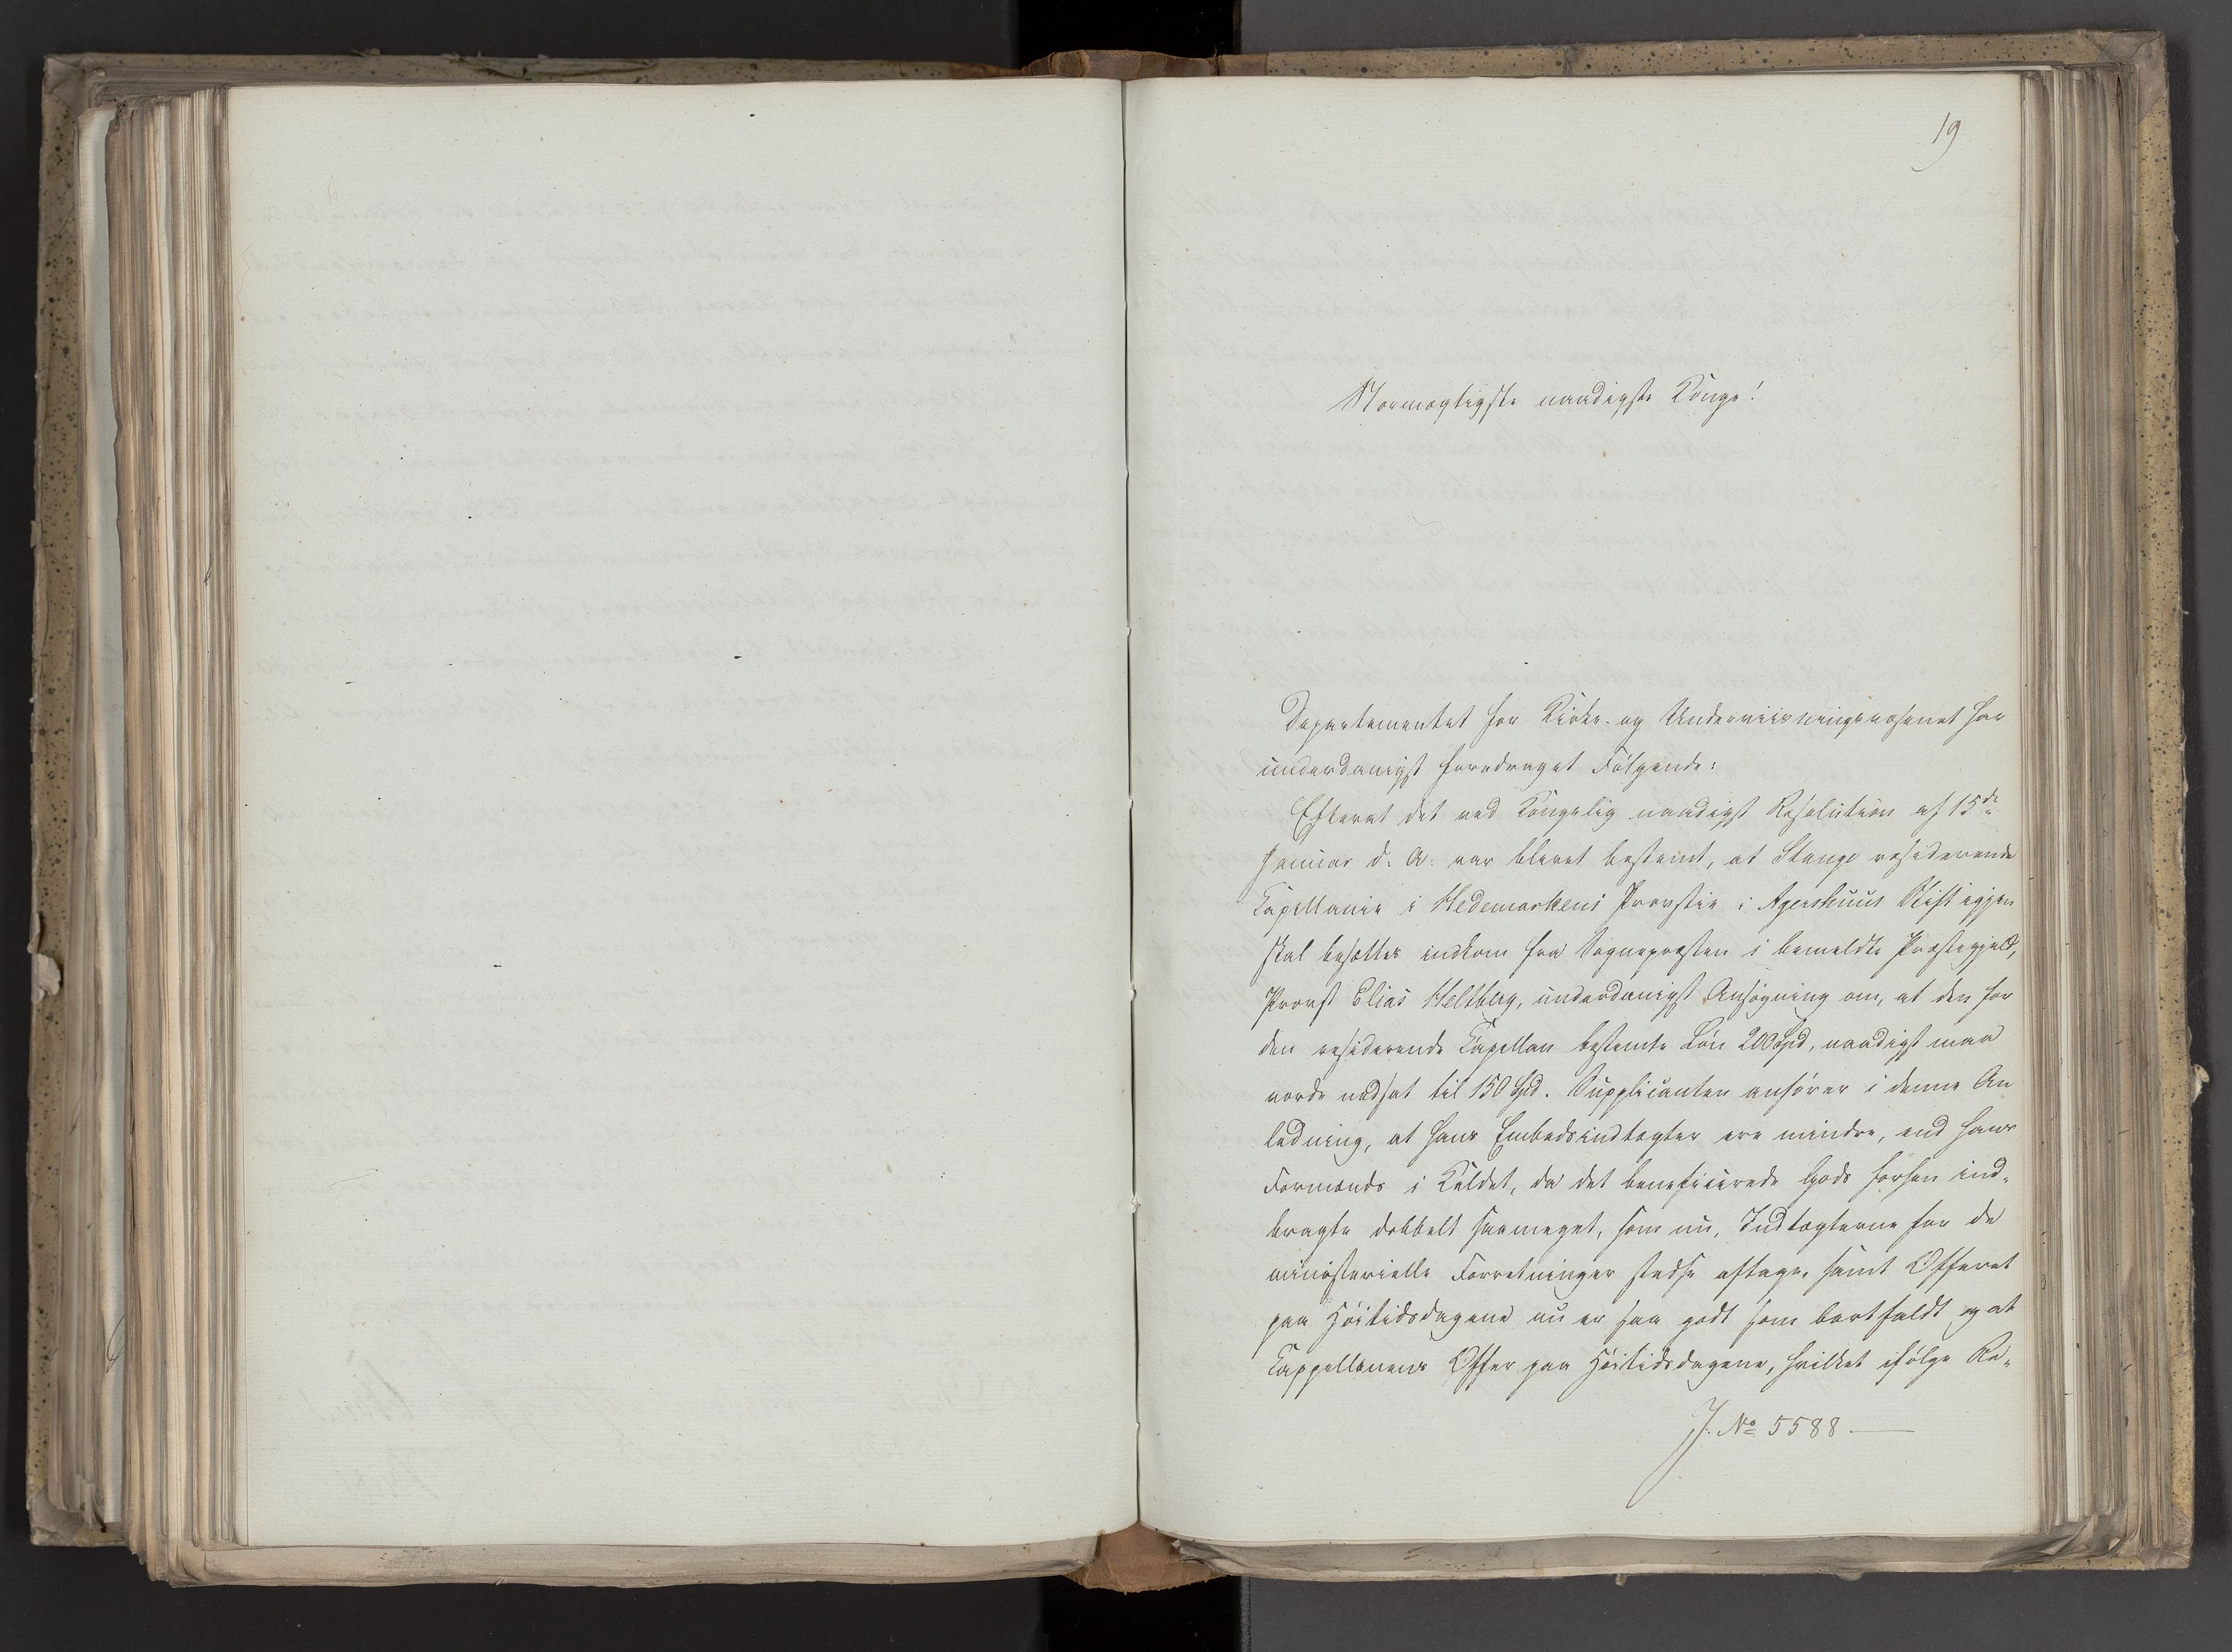 19
Stormægtigste naadigste Konge!
Departementet for Kirke- og Underviisningsvæsenet har
underdanigst foredraget Følgende:
Efterat det ved Kongelig naadigst Resolution af 15de
Januar d. A. var blevet bestemt, at Stange residerende
Capellanie i Hedemarkens Provstie i Agershuus Stift igjen
skal besættes indkom fra Sognepræsten i bemeldte Præstegjeld,
Provst Elias Heltberg, underdanigst Ansøgning om, at den for
den residerende Capellan bestemte Løn 200 Spd, naadigst maa
vorde nedsat til 150 Spd. Supplicanten anfører i denne An
ledning, at hans Embedsindtægter ere mindre, end hans
Formands i Kaldet, da det beneficerede Gods forhen ind-
bragte dobbelt saameget, som nu, Indtægterne for de
ministerielle Forretninger stedse aftage, samt Offeret
paa Høitidsdagene nu er saa godt som bortfaldt og at
Cappellanens Offer paa Høitidsdagene, hvilket ifølge Re-
J. No 5588.